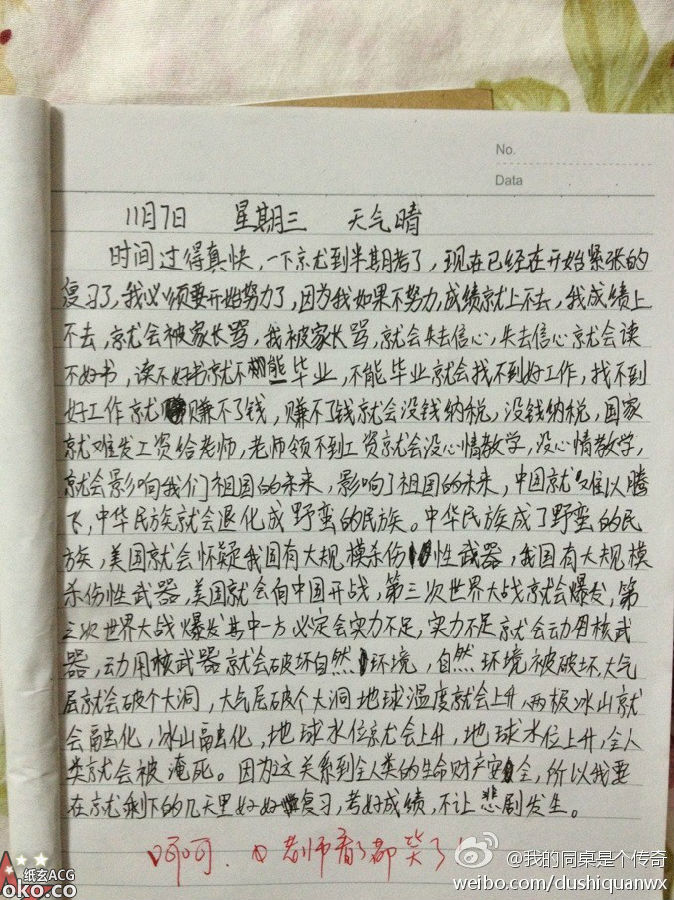 No.
Data
11月7日 星期三 天气晴
时间过得真快,一下就到半期考了,现在已经在开始紧张的
复习了,我必须要开始努力了,因为我如果不努力,成绩就上不去,我成绩上
不去,就会被家长骂,我被家长骂,就会失去信心,失去信心就会读
不好书,读不好书就不能毕业,不能毕业就会找不到好工作,找不到
好工作就赚不了钱,赚不了钱就会没钱纳税,没钱纳税,国家
就难发工资给老师,老师领不到工资就会没心情教学,没心情教学,
就会影响我们祖国的未来,影响了祖国的未来,中国就难以腾
飞,中华民族就会退化成野蛮的民族。中华民族成了野蛮的民
族,美国就会怀疑我国有大规模杀伤性武器,我国有大规模
杀伤性武器,美国就会向中国开战,第三次世界大战就会爆发,第
三次世界大战爆发其中一方必定会实力不足,实力不足就会动用核武
器,动用核武器就会破坏自然环境,自然环境被破坏,大气
层就会破个大洞,大气层破个大洞地球温度就会上升,两极冰山就
会融化,冰山融化,地球水位就会上升,地球水位上升,全人
类就会被淹死。因为这关系到全人类的生命财产安全,所以我要
在就剩下的几天里好好复习,考好成绩,不让悲剧发生。
呵呵、老师看了都笑了!
@我的同桌是个传奇
weibo.com/dushiquanwx
纸玄ACG
oko.co